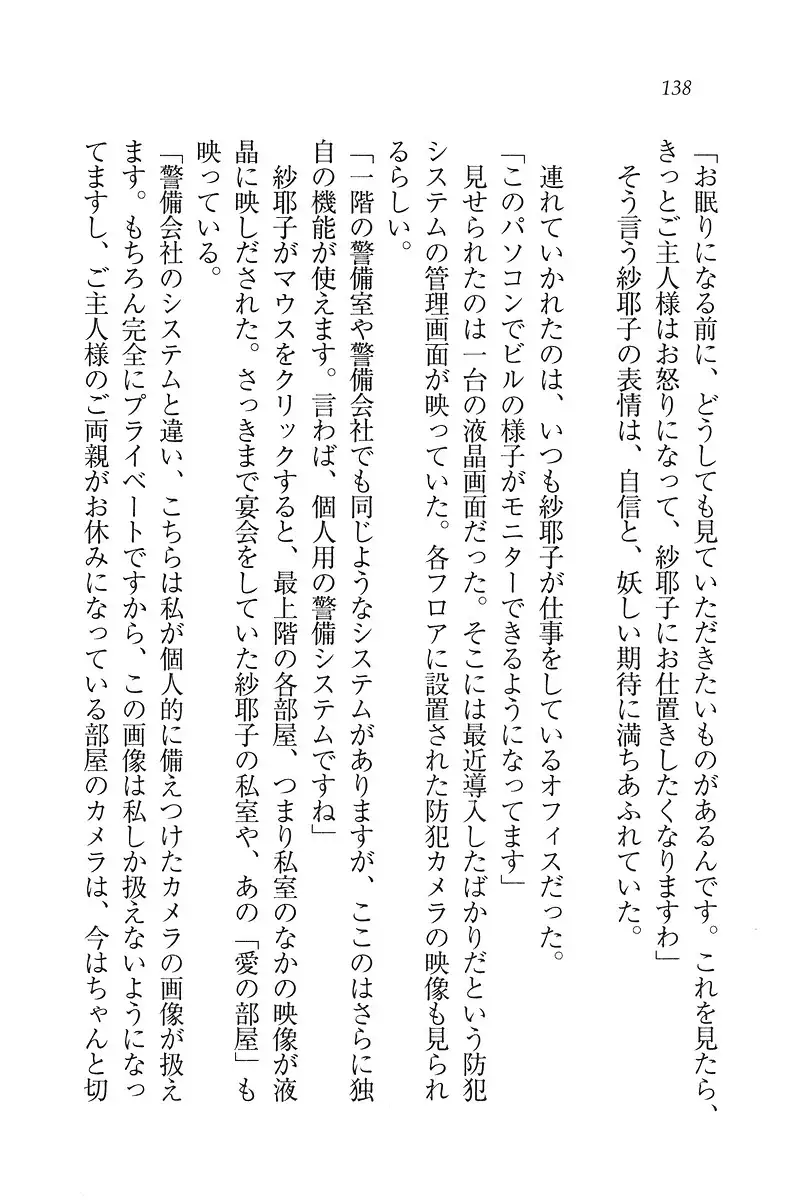 138
「お眠りになる前に、どうしても見ていただきたいものがあるんです。これを見たら、
きっとご主人様はお怒りになって、紗耶子にお仕置きしたくなりますわ」
そう言う紗耶子の表情は、自信と、妖しい期待に満ちあふれていた。
連れていかれたのは、いつも紗耶子が仕事をしているオフィスだった。
「このパソコンでビルの様子がモニターできるようになってます」
見せられたのは一台の液晶画面だった。そこには最近導入したばかりだという防犯
システムの管理画面が映っていた。各フロアに設置された防犯カメラの映像も見られ
るらしい。
「一階の警備室や警備会社でも同じようなシステムがありますが、ここのはさらに独
自の機能が使えます。言わば、個人用の警備システムですね」
紗耶子がマウスをクリックすると、最上階の各部屋、つまり私室のなかの映像が液
晶に映しだされた。さっきまで宴会をしていた紗耶子の私室や、あの「愛の部屋」も
映っている。
「警備会社のシステムと違い、こちらは私が個人的に備えつけたカメラの画像が扱え
ます。もちろん完全にプライベートですから、この画像は私しか扱えないようになっ
てますし、ご主人様のご両親がお休みになっている部屋のカメラは、今はちゃんと切